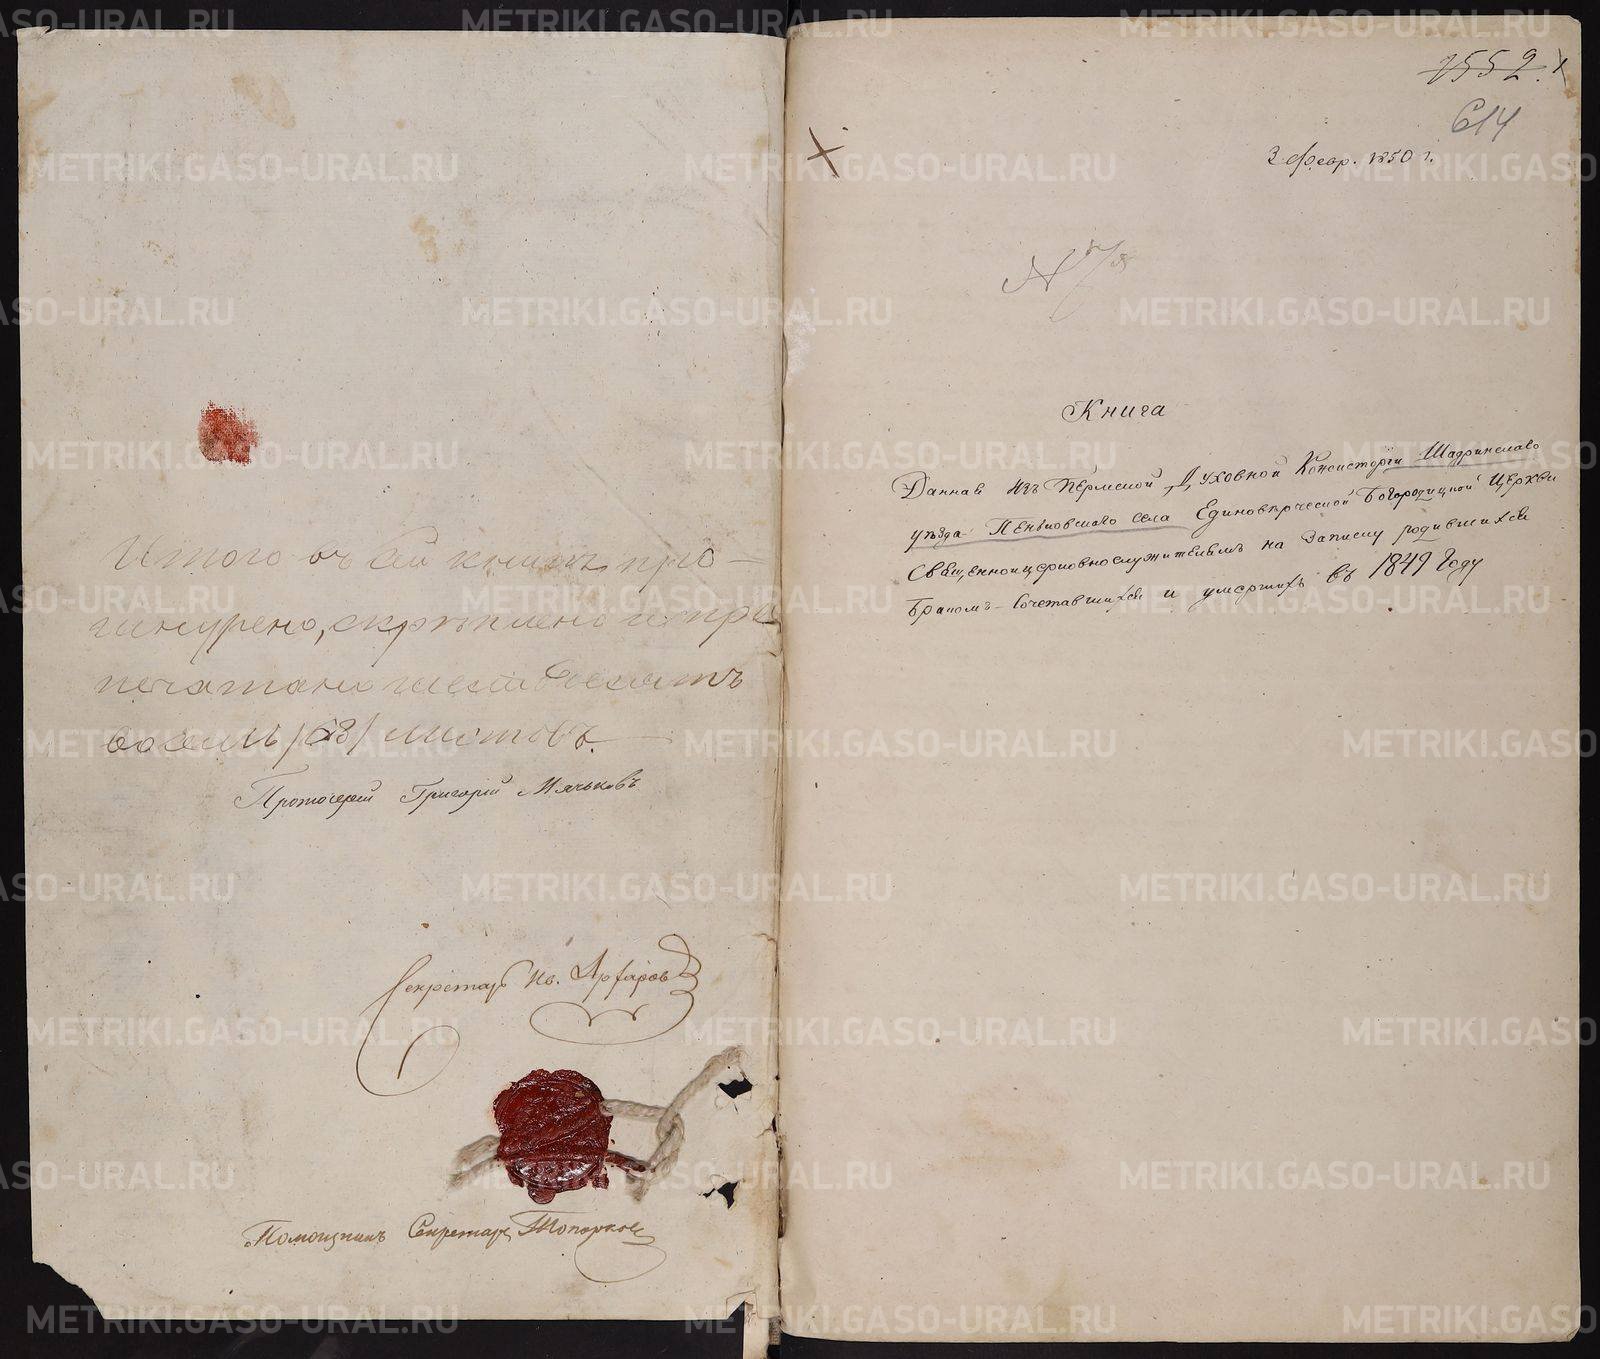 Итого въ сей книгѣ про-
шнурено, скрѣплено и про
печатано шестьдесятъ
восемь /68/ листовъ.
Протоіерей Григорій Мячьковъ
Секретарь Ив.
Помощникъ Секретаря Топорков
1552.
614
3 Февр. 1850 г.
N 7
Книга
Данная изъ Пермской Духовной Консисторіи Шадринскаго
уѣзда Пеньковскаго села Единовѣрческой Богородицкой Церкви
Священноицерковнослужителямъ на записку родившихся
Бракомъ-сочетавшихся и умершихъ въ 1849 Году
METRIKI.GASO-URAL.RU